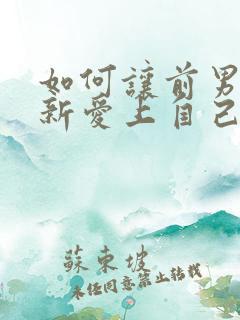 如何讓前男
新愛上自己
蘇東坡
未经同意禁止转载